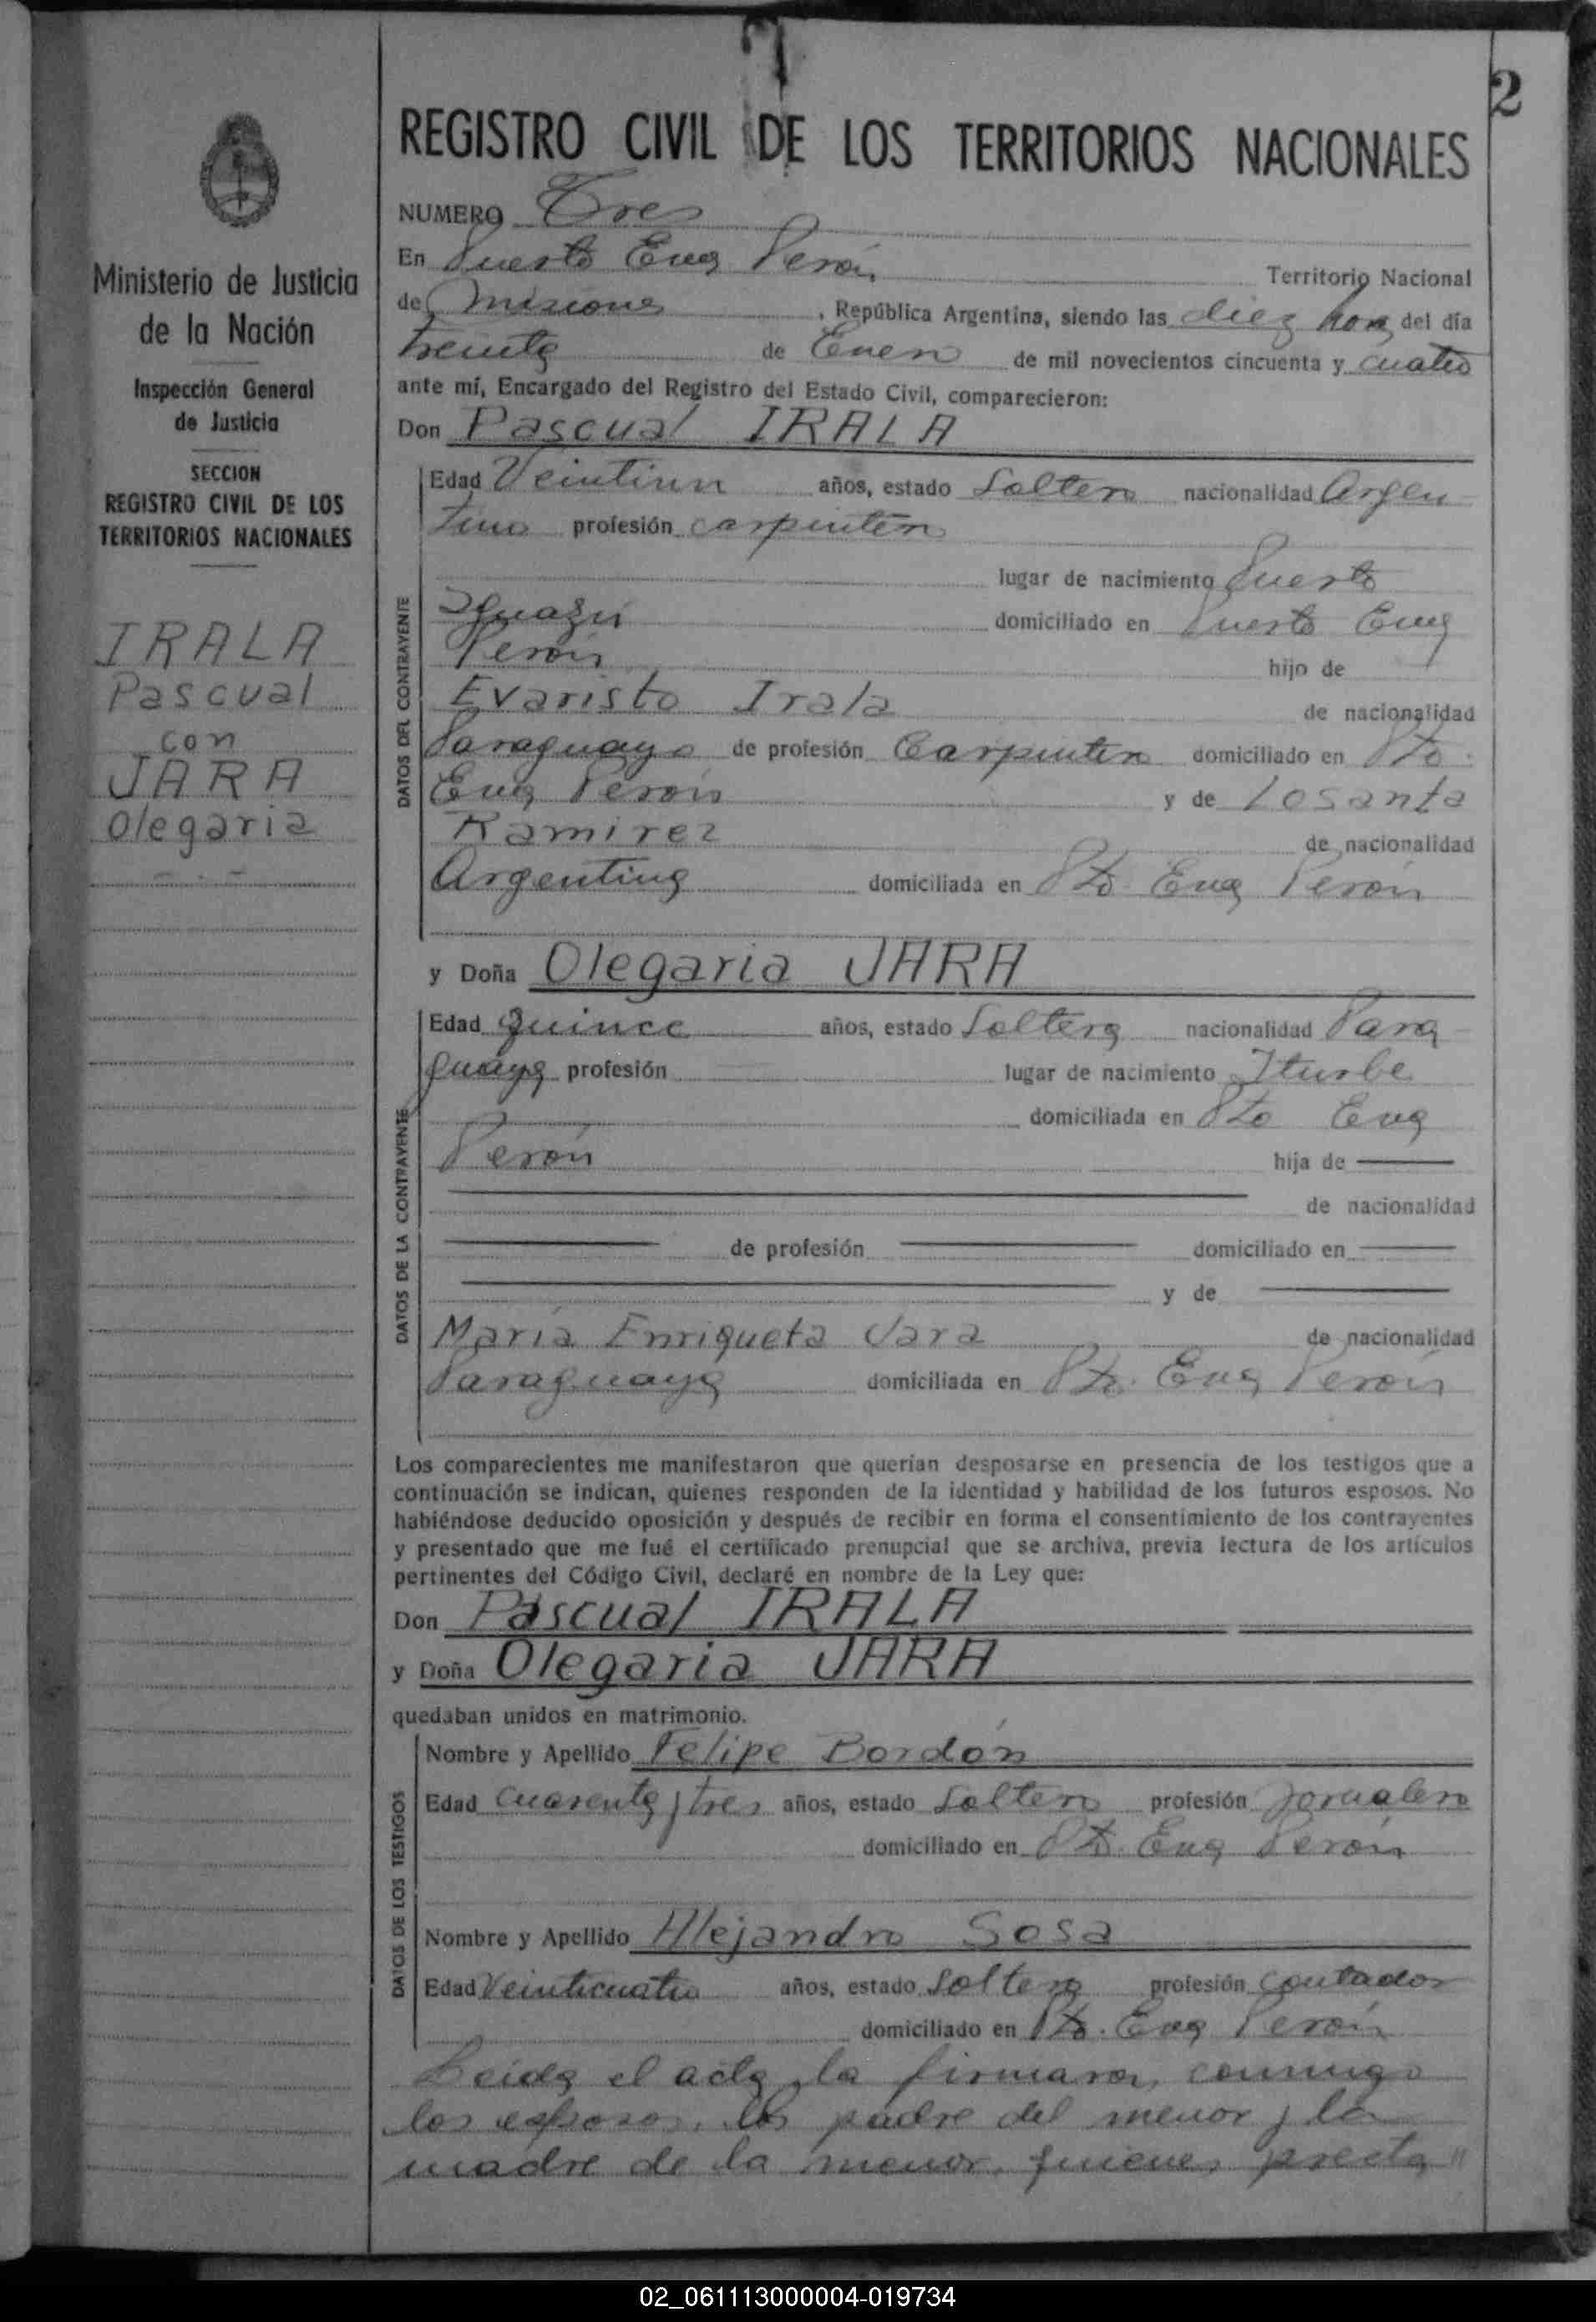 2
REGISTRO CIVIL DE LOS TERRITORIOS NACIONALES
NUMERO Tres
En Puerto Eva Perón Territorio Nacional
de Misiones, República Argentina, siendo las diez horas del día
treinta de Enero de mil novecientos cincuenta y cuatro
ante mí, Encargado del Registro del Estado Civil, comparecieron:
Don Pascual IRALA
DATOS DEL CONTRAYENTE
Edad Veintiun años, estado Soltero nacionalidad Argen
tino profesión carpintero
lugar de nacimiento Puerto
Iguazú domiciliado en Puerto Eva
Perón hijo de
Evaristo Irala de nacionalidad
Paraguayo de profesión Carpintero domiciliado en Pto.
Eva Perón y de Losanta
Ramirez de nacionalidad
Argentina domiciliada en Pto. Eva Perón
y Doña Olegaria JARA
DATOS DE LA CONTRAYENTE
Edad quince años, estado Soltera nacionalidad Para
guaya profesión lugar de nacimiento Iturbe
domiciliada en Pto Eva
Perón hija de
de nacionalidad
de profesión domiciliado en
y de
María Enriqueta Jara de nacionalidad
Paraguaya domiciliada en Pto. Eva Perón
Los comparecientes me manifestaron que querían desposarse en presencia de los testigos que a
continuación se indican, quienes responden de la identidad y habilidad de los futuros esposos. No
habiéndose deducido oposición y después de recibir en forma el consentimiento de los contrayentes
y presentado que me fué el certificado prenupcial que se archiva, previa lectura de los artículos
pertinentes del Código Civil, declaré en nombre de la Ley que:
Don Pascual IRALA
y Doña Olegaria JARA
quedaban unidos en matrimonio.
DATOS DE LOS TESTIGOS
Nombre y Apellido Felipe Bordón
Edad Cuarenta y tres años, estado Soltero profesión Jornalero
domiciliado en Pto. Eva Perón
Nombre y Apellido Alejandro Sosa
Edad Veinticuatro años, estado Soltero profesión Contador
domiciliado en Pto. Eva Perón
Leida el acta, la firmaron conmigo
los esposos, los padre del menor y la
madre de la menor, quienes presta"
Ministerio de Justicia
de la Nación
Inspección General
de Justicia
SECCION
REGISTRO CIVIL DE LOS
TERRITORIOS NACIONALES
IRALA
Pascual
con
JARA
Olegaria
02_061113000004-019734